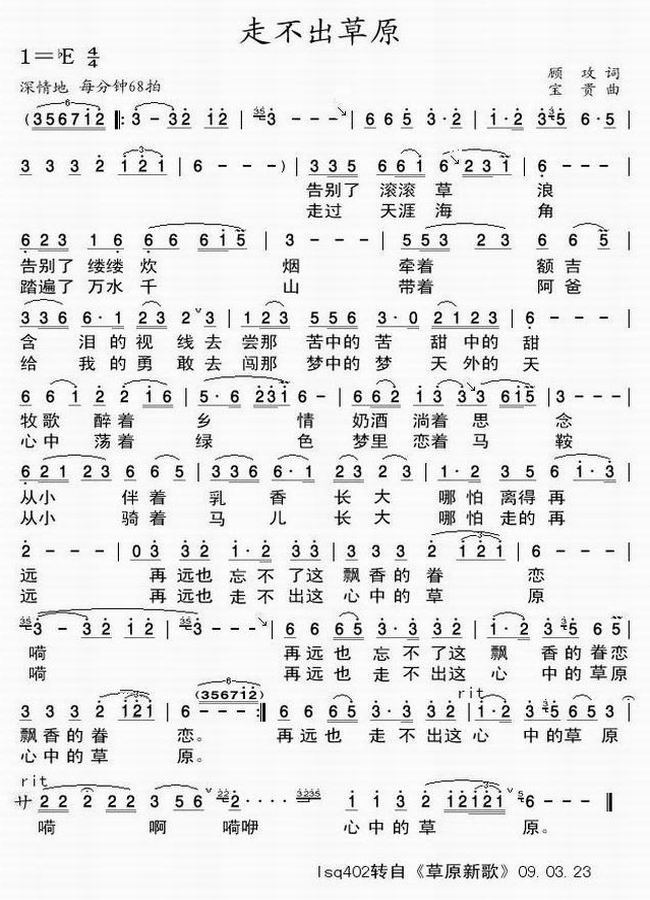 走不出草原
1=♭E 4/4
深情地 每分钟68拍
顾 攻 词
宝 贵 曲
(356712 ‖: 3 - 32 12 | 3 - - - | 6 6 5 3·2 | 1·2 3 5 6·5 |
3 3 3 2 121 | 6 - - -) | 3 3 5 661 6 231 | 6 - - - |
告别了 滚滚 草 浪
走过 天涯 海 角
6 2 3 1 6 6 6 615 | 3 - - - | 553 2 2 6 65 |
告别了 缕缕 炊 烟 牵着 额吉
踏遍了 万水 千 山 带着 阿爸
3 3 6 6·1 2 3 2 3 | 1 2 3 5 5 6 3·0 2123 | 6 - - - |
含 泪的 视 线 去 尝那 苦中的 苦 甜 中的 甜
给 我的 勇 敢 去 闯那 梦中的 梦 天 外的 天
6 61 2 2 216 | 5·6 231 6 - | 6 6 2 1 3 3 3 615 | 3 - - - |
牧歌 醉着 乡 情 奶酒 淌着 思 念
心中 荡着 绿 色 梦里 恋着 马 鞍
6 2 1 2 3 6 6 5 | 3 3 6 6·1 23 23 | 1·2 3 5 6 1·3 |
从小 伴着 乳 香 长 大 哪怕 离得 再
从小 骑着 马 儿 长 大 哪怕 走的 再
2 - - - | 0 3 3 2 1·2 3 3 | 3 3 3 2 121 | 6 - - - |
远 再 远也 忘 不 了这 飘香的 眷 恋
远 再 远也 走 不 出这 心中的 草 原
3 - 32 12 | 3 - - - | 6 6 65 3·3 32 | 1·2 35 65 |
嗬 再远也 忘 不了这 飘 香的眷恋
嗬 再远也 走 不出这 心 中的草原
(356712)
rit
3 3 3 2 121 | 6 - - - :‖ 6 6 65 3·3 32 | 1·2 35 653 |
飘香的 眷 恋。 再远也 走 不 出这 心 中的草 原
心中的 草 原。
rit
サ 2 2 2 2 2 3 5 6 2···· 1 1 3 2 12121 6 - - ‖
嗬 啊 嗬咿 心中的草 原。
lsq402转自《草原新歌》09.03.23